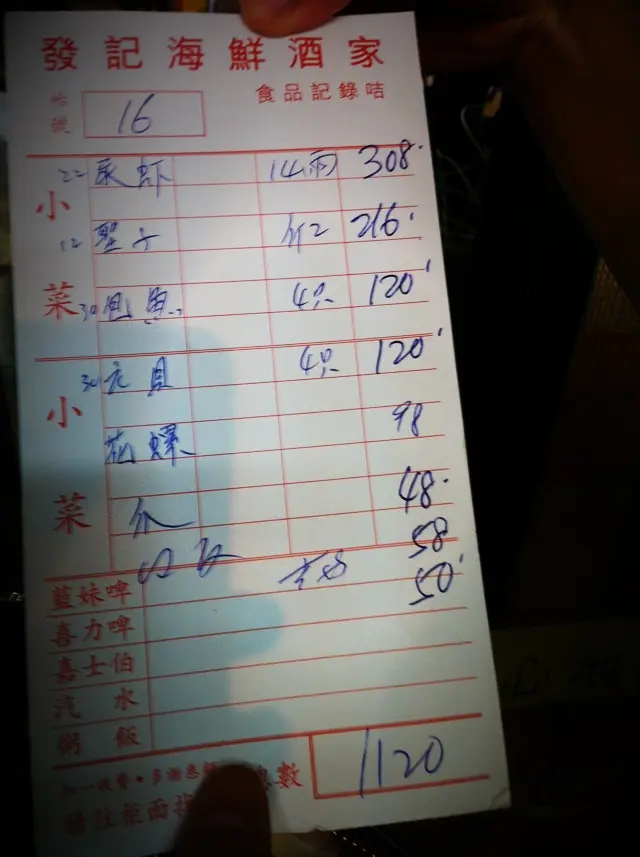 發記海鮮酒家
食品記錄咭
枱號 16
小菜
22 尿虾 14両 308
12 聖子 216
30 鮑魚 4只 120
小菜
30 元貝 4只 120
花螺 98
48
58
藍妹啤 50
喜力啤
嘉士伯
汽水
粥飯
加一收費·多謝惠顧 總數 1120
請往柜面